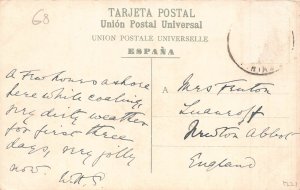 68
TARJETA POSTAL
Unión Postal Universal
UNION POSTALE UNIVERSELLE
ESPAÑA
A Few hours ashore
here while coaling,
very dirty weather
for first three
days, very jolly
now.
A
Mrs Fenton
Newton Abbot
England